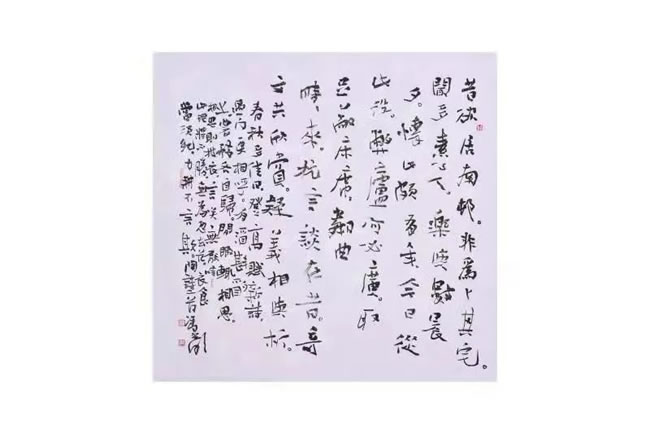 昔欲居南邨。非為卜其宅。
聞多素心人。樂與數晨
夕。懷此頗有年。今日從
此役。弊廬何必廣。取
足蔽床席。鄰曲
時時來。抗言談在昔。奇
文共欣賞。疑義相與析。
春秋多佳日。登高賦新詩。
過門更相呼。有酒斟酌
之。農務各自歸。閑暇輒相思。
相思則披衣。言笑無厭時
此理將不勝。無為忽去茲衣食
當須紀。力耕不吾欺。陶詩二首